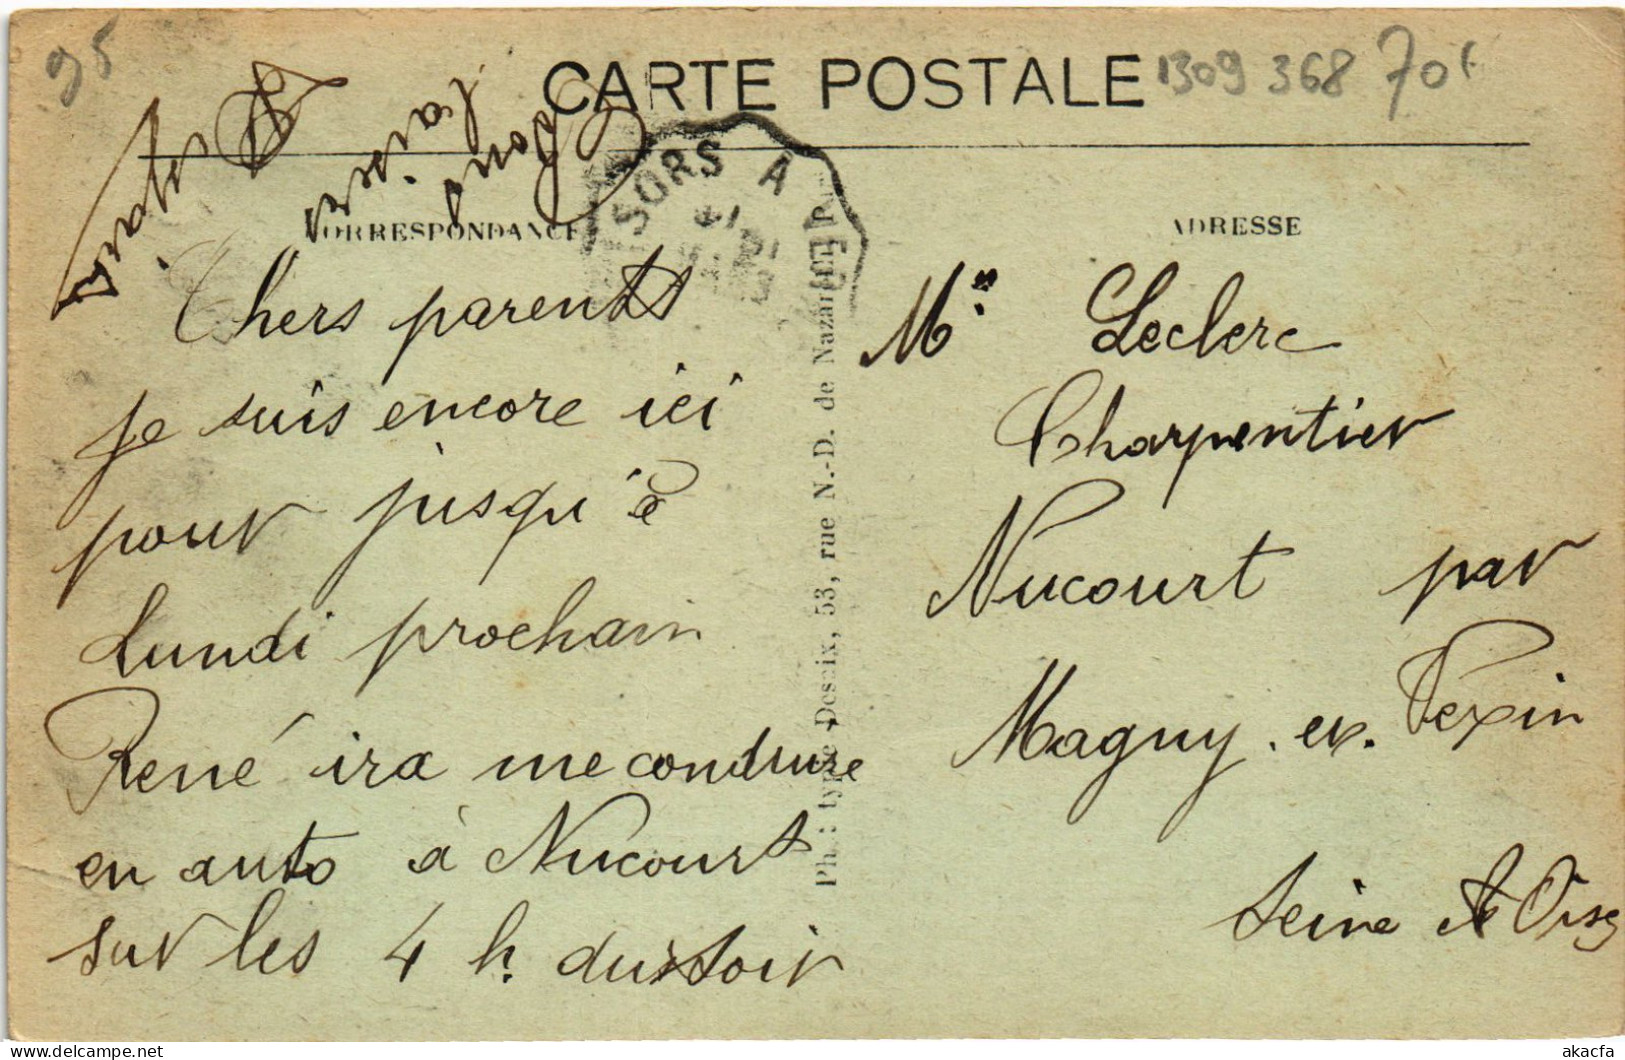 95
CARTE POSTALE
1309 368 70f
CORRESPONDANCE
ADRESSE
SORS A
Chers parents
je suis encore ici
pour jusqu'à
Lundi prochain
René ira me conduire
en auto à Nucourt
sur les 4 h. du soir
Bons
baisers
Ph. : type Deseix, 53, rue N.-D. de Nazareth, P
Mr Leclerc
Charpentier
Nucourt par
Magny. en. Vexin
Seine et Oise
akacfa